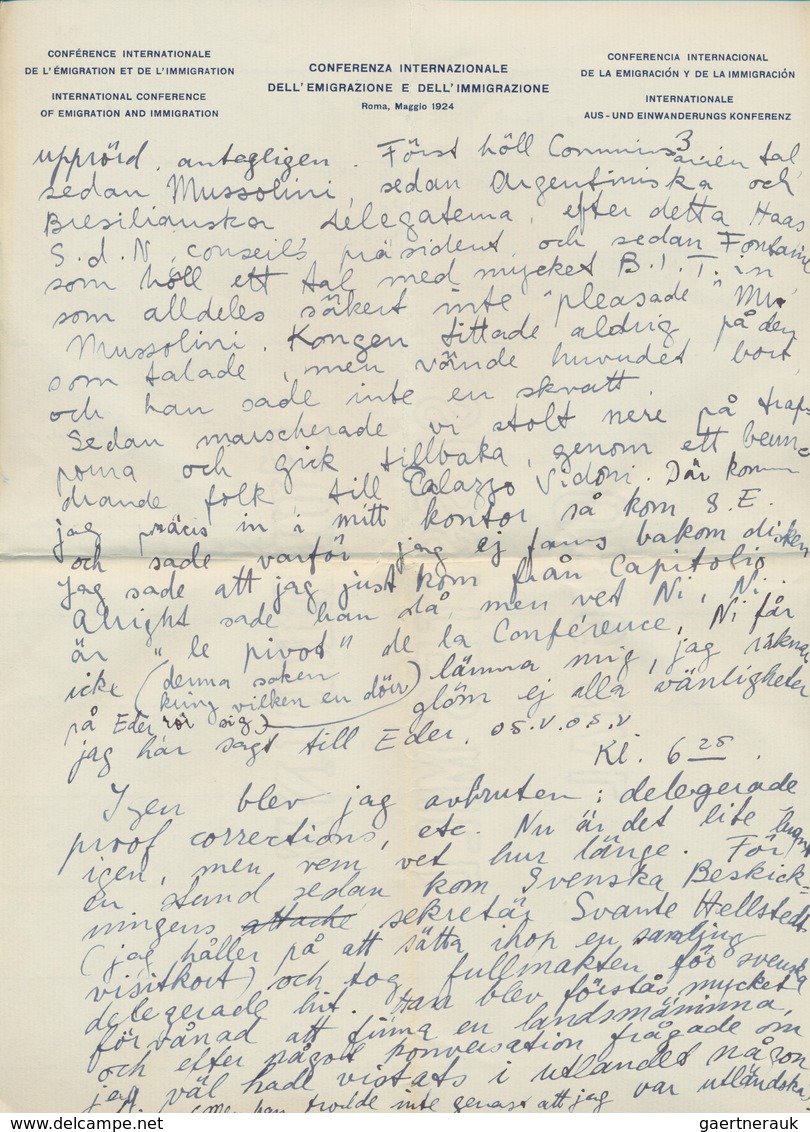 CONFÉRENCE INTERNATIONALE
DE L'ÉMIGRATION ET DE L'IMMIGRATION
INTERNATIONAL CONFERENCE
OF EMIGRATION AND IMMIGRATION
CONFERENZA INTERNAZIONALE
DELL'EMIGRAZIONE E DELL'IMMIGRAZIONE
Roma, Maggio 1924
CONFERENCIA INTERNACIONAL
DE LA EMIGRACIÓN Y DE LA IMMIGRACIÓN
INTERNATIONALE
AUS - UND EINWANDERUNGS KONFERENZ
3
upprörd, antagligen. Först höll tal,
sedan Mussolini, sedan Argentiniska och
Bresilianska delegaterna, efter detta Haas
S.d.N. conseil's präsident, och sedan Fontaine
som höll ett tal med mycket B.I.T. in
som alldeles säkert inte "pleasade" Mr
Mussolini. Kongen tittade aldrig på den
som talade, men vände huvudet bort
och han sade inte en skvatt.
Sedan marscherade vi stolt nere på trap-
porna och gick tillbaka, genom ett beun-
drande folk till Palazzo Vidoni. Där komm
jag präcis in i mitt kontor så kom S.E.
och sade varför jag ej fanns bakom disken
Jag sade att jag just kom från Capitolio.
Alright sade han då, men vet Ni, Ni
är "le pivot" de la Conférence, Ni får
icke (denna saken lämna mig, jag räknar
kring vilken en dörr
på Eder rör sig) glöm ej alla vänligheter
jag har sagt till Eder. o.s.v. o.s.v
Kl. 6 25.
Igen blev jag avbruten: delegerade
proof corrections, etc. Nu är det lite lugnt
igen, men vem vet hur länge. För
en stund sedan kom Svenska Beskick-
ningens attaché sekretär Svante Hellstedt
(jag håller på att sätta ihop en samling
visitkort) och tog fullmakten för svenska
delegerade hit. Han blev förstås mycket
förvånad att finna en landsmäninna,
och efter något konversation frågade om
jag väl hade vistats i utlandet någon
(Men han trodde inte genast att jag var utländska)